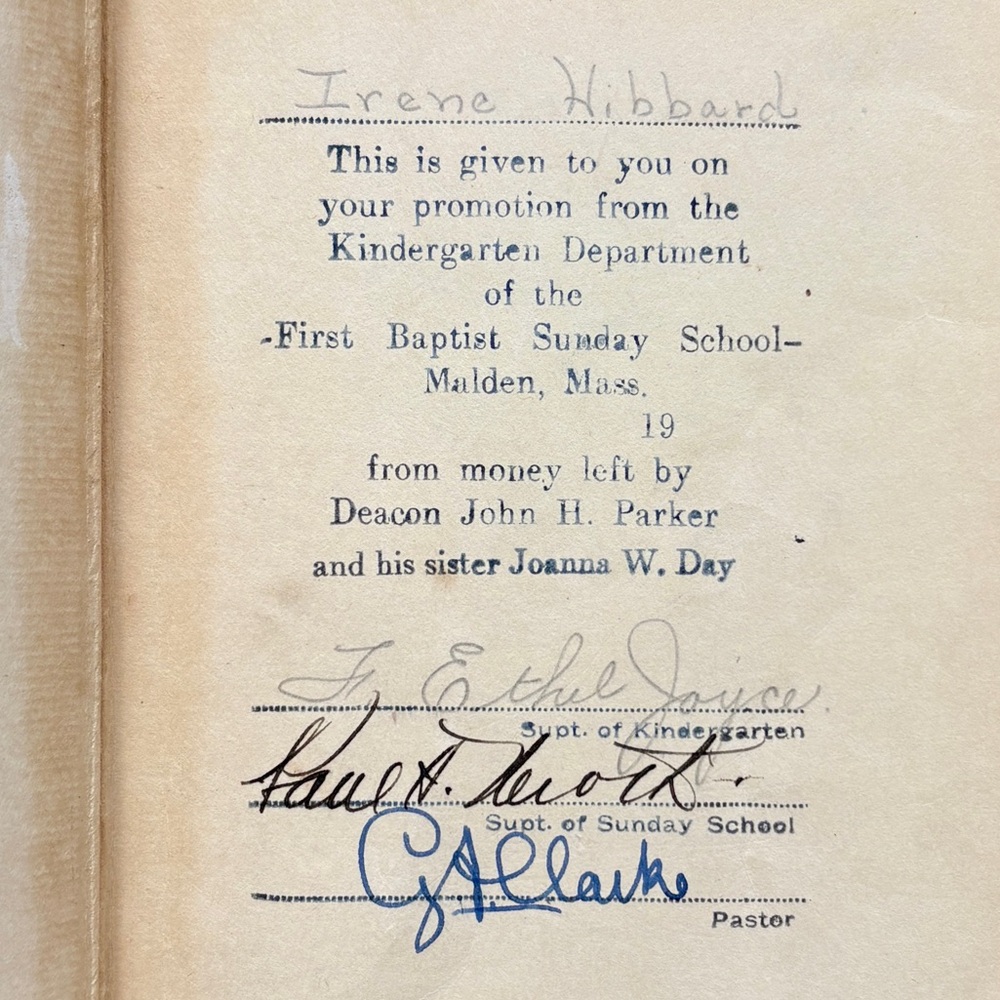 Irene Hibbard
This is given to you on
your promotion from the
Kindergarten Department
of the
-First Baptist Sunday School-
Malden, Mass.
19
from money left by
Deacon John H. Parker
and his sister Joanna W. Day
F. Ethel Joyce
Supt. of Kindergarten
Supt. of Sunday School
Clarke
Pastor